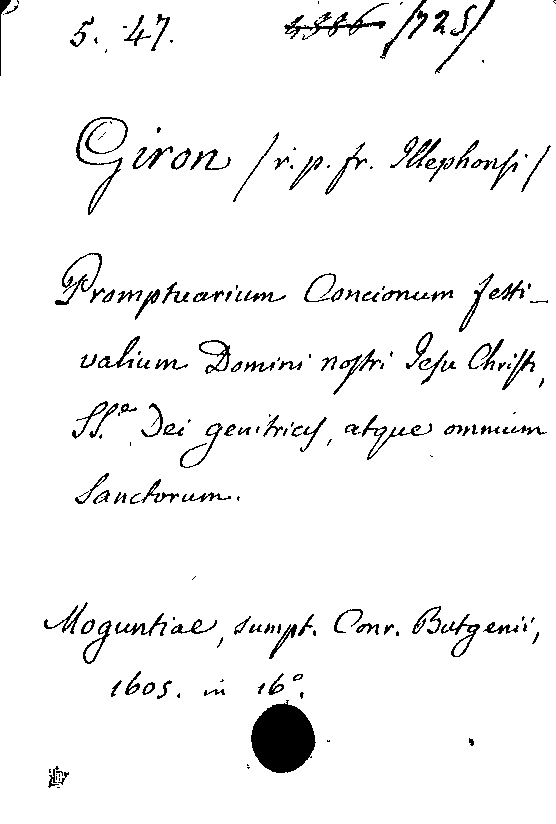 5. 47. 4386 /725/
Giron /r. p. fr. Illephonsi/
Promptuarium Concionum festi-
valium Domini nostri Jesu Christi,
SS.ae Dei genitricis, atque omnium
Sanctorum.
Moguntiae, sumpt. Conr. Butgenii,
1605. in 16°.